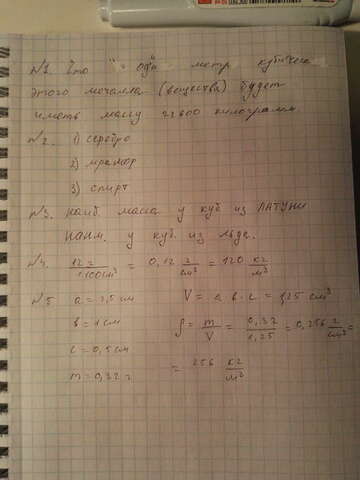 N1. Что "один метр кубическ
этого металла (вещества) будет
иметь массу 22600 килограмм.
N2. 1) серебро
2) мрамор
3) спирт
N3. наиб. масса у куб из ЛАТУНИ
наим. у куб. из льда.
N4. 12 г / 100 см³ = 0,12 г/см³ = 120 кг/м³
N5 a = 2,5 см V = a·b·c = 1,25 см³
b = 1 см ρ = m/V = 0,32/1,25 = 0,256 г/см³ =
c = 0,5 см
m = 0,32 г = 256 кг/м³